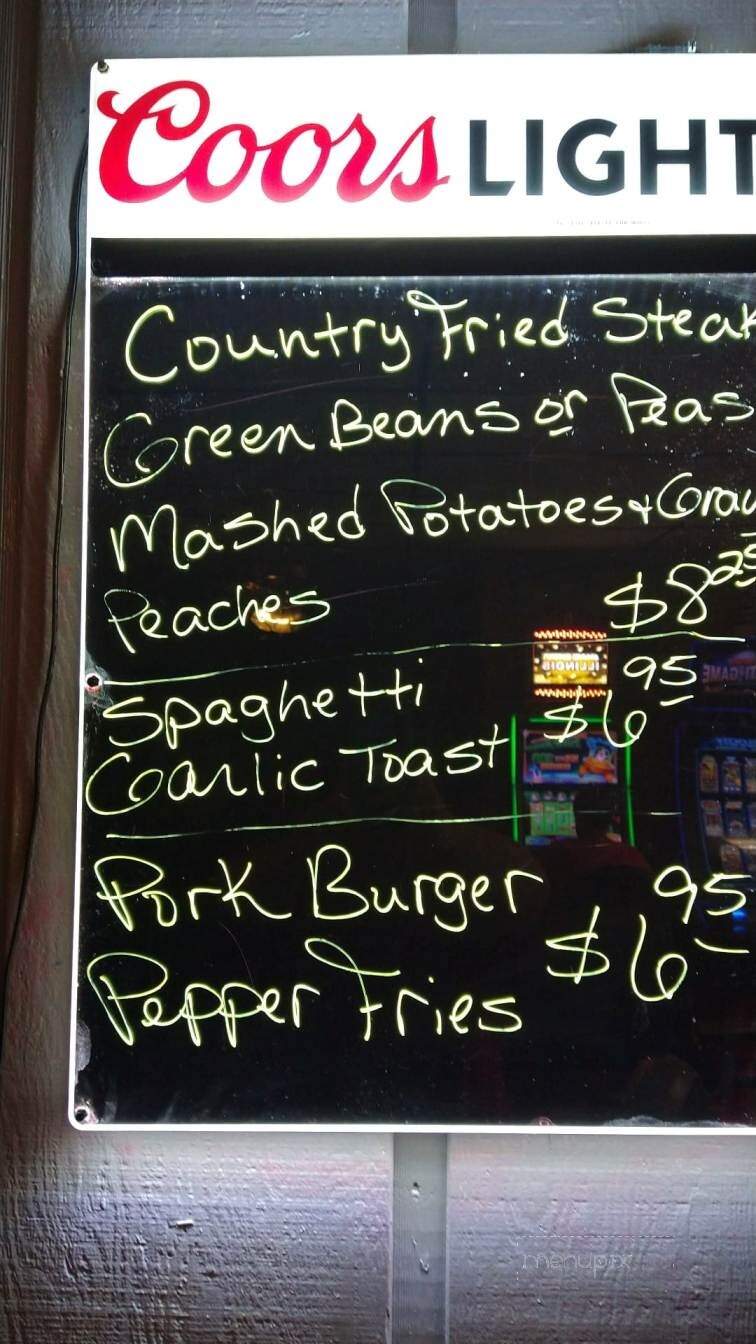 Coors LIGHT
Country Fried Steak
Green Beans or Peas
Mashed Potatoes + Grav
Peaches $8 25
Spaghetti $6 95
Garlic Toast
Pork Burger $6 95
Pepper Fries
menupix